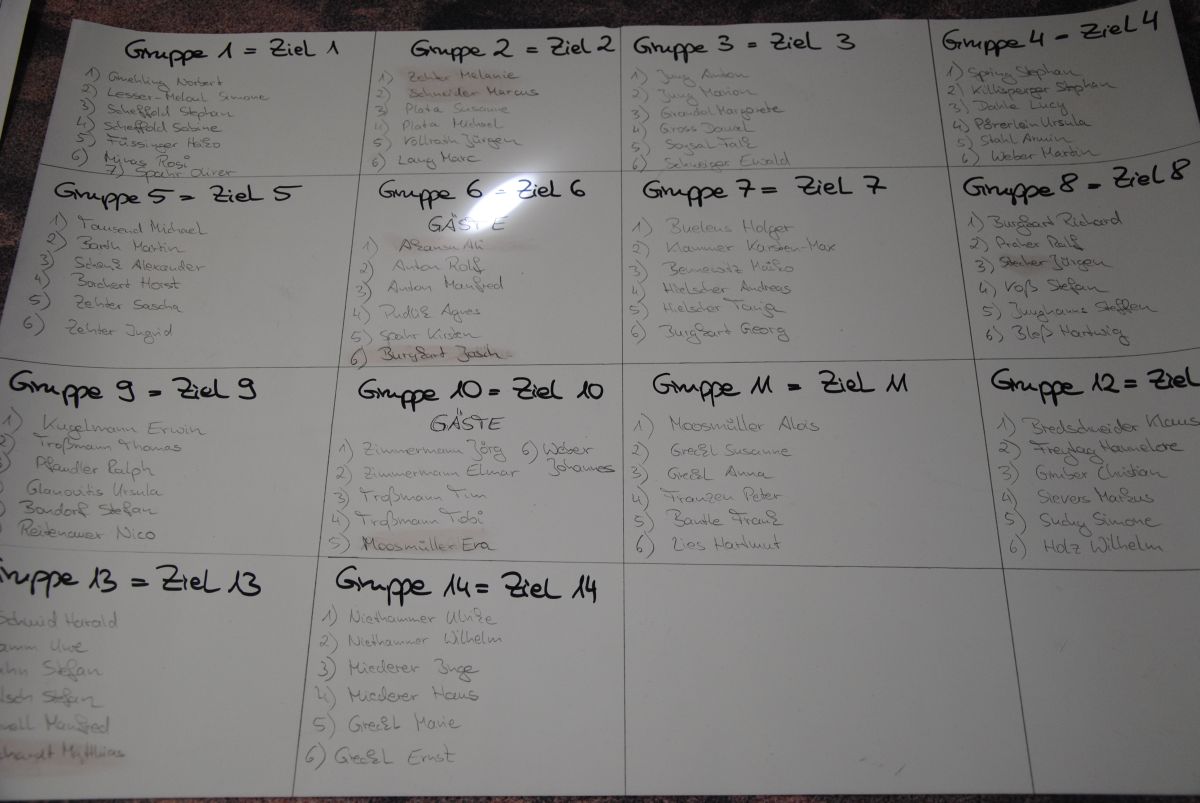 Gruppe 1 = Ziel 1
1) Gmehling Norbert
2) Lesser-Meloul Simone
3) Scheffold Stephan
4) Scheffold Sabine
5) Füssinger Heiko
6) Minas Rosi
7) Spahr Oliver
Gruppe 2 = Ziel 2
1) Zehter Melanie
2) Schneider Marcus
3) Plata Susanne
4) Plata Michael
5) Vollrath Jürgen
6) Lang Marc
Gruppe 3 = Ziel 3
1) Jung Anton
2) Jung Marion
3) Margarete
4) Gross Daniel
5) Soysal Falk
6) Schweiger Ewald
Gruppe 4 = Ziel 4
1) Spring Stephan
2) Stephan
3) Dahle Lucy
4) Pörerlein Ursula
5) Stahl Armin
6) Weber Martin
Gruppe 5 = Ziel 5
1) Tausend Michael
2) Barth Martin
3) Schenk Alexander
4) Borchert Horst
5) Zehter Sascha
6) Zehter Ingrid
Gruppe 6 = Ziel 6
GÄSTE
1) Ali
2) Anton Rolf
3) Anton Manfred
4) Pudlik Agnes
5) Spahr Kirsten
6) Burghart
Gruppe 7 = Ziel 7
1) Buelens Holger
2) Klammer Karsten-Max
3) Bennewitz Heiko
4) Hielscher Andreas
5) Hielscher Tanja
6) Burghart Georg
Gruppe 8 = Ziel 8
1) Burghart Richard
2) Rolf
3) Stecher Jürgen
4) Voß Stefan
5) Junghanns Steffen
6) Bloß Hartwig
Gruppe 9 = Ziel 9
1) Kugelmann Erwin
2) Troßmann Thomas
Pfandler Ralph
Glanovitis Ursula
Bondorf Stefan
Reitenauer Nico
Gruppe 10 = Ziel 10
GÄSTE
1) Zimmermann Jörg
2) Zimmermann Elmar
3) Troßmann Tim
4) Troßmann Tobi
5) Moosmüller Eva
6) Weber
Johannes
Gruppe 11 = Ziel 11
1) Moosmüller Alois
2) Greckl Susanne
3) Greckl Anna
4) Franzen Peter
5) Bantle Frank
6) Lies Hartmut
Gruppe 12 = Ziel
1) Bredschneider Klaus
2) Freytag Hannelore
3) Gruber Christian
4) Sievers Markus
5) Suchy Simone
6) Holz Wilhelm
Gruppe 13 = Ziel 13
Schmid Harald
Uwe
Stefan
Stefan
Manfred
Matthias
Gruppe 14 = Ziel 14
1) Niethammer Ulrike
2) Niethammer Wilhelm
3) Miederer Inge
4) Miederer Hans
5) Greckl Marie
6) Greckl Ernst